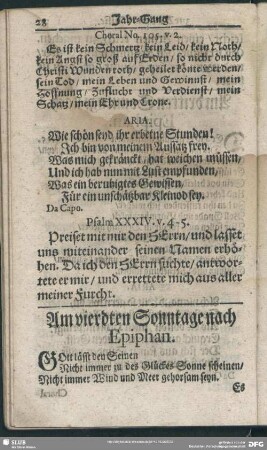 28 Jahr-Gang
Choral No. 105. v. 2.
Es ist kein Schmertz, kein Leid, kein Noth,
kein Angst so groß auf Erden, so nicht durch
Christi Wunden roth, geheilet könte werden,
sein Tod, mein Leben und Gewinnst, mein
Hoffnung, Zuflucht und Verdienst, mein
Schatz, mein Ehr und Crone.
ARIA.
Wie schön seyd ihr erbetne Stunden!
Ich bin von meinem Aussatz frey.
Was mich gekränckt, hat weichen müssen,
Und ich hab nun mit Lust empfunden,
Was ein beruhigtes Gewissen,
Für ein unschätzbar Kleinod sey.
Da Capo.
Psalm XXXIV. v. 4-5.
Preiset mit mir den HErrn, und lasset
uns miteinander seinen Namen erhö-
hen. Da ich den HErrn suchte, antwor-
tete er mir, und errettete mich aus aller
meiner Furcht.
Am vierdten Sonntage nach
Epiphan.
GOtt läßt den Seinen
Nicht immer zu des Glückes Sonne scheinen,
Nicht immer Wind und Meer gehorsam seyn.
Es